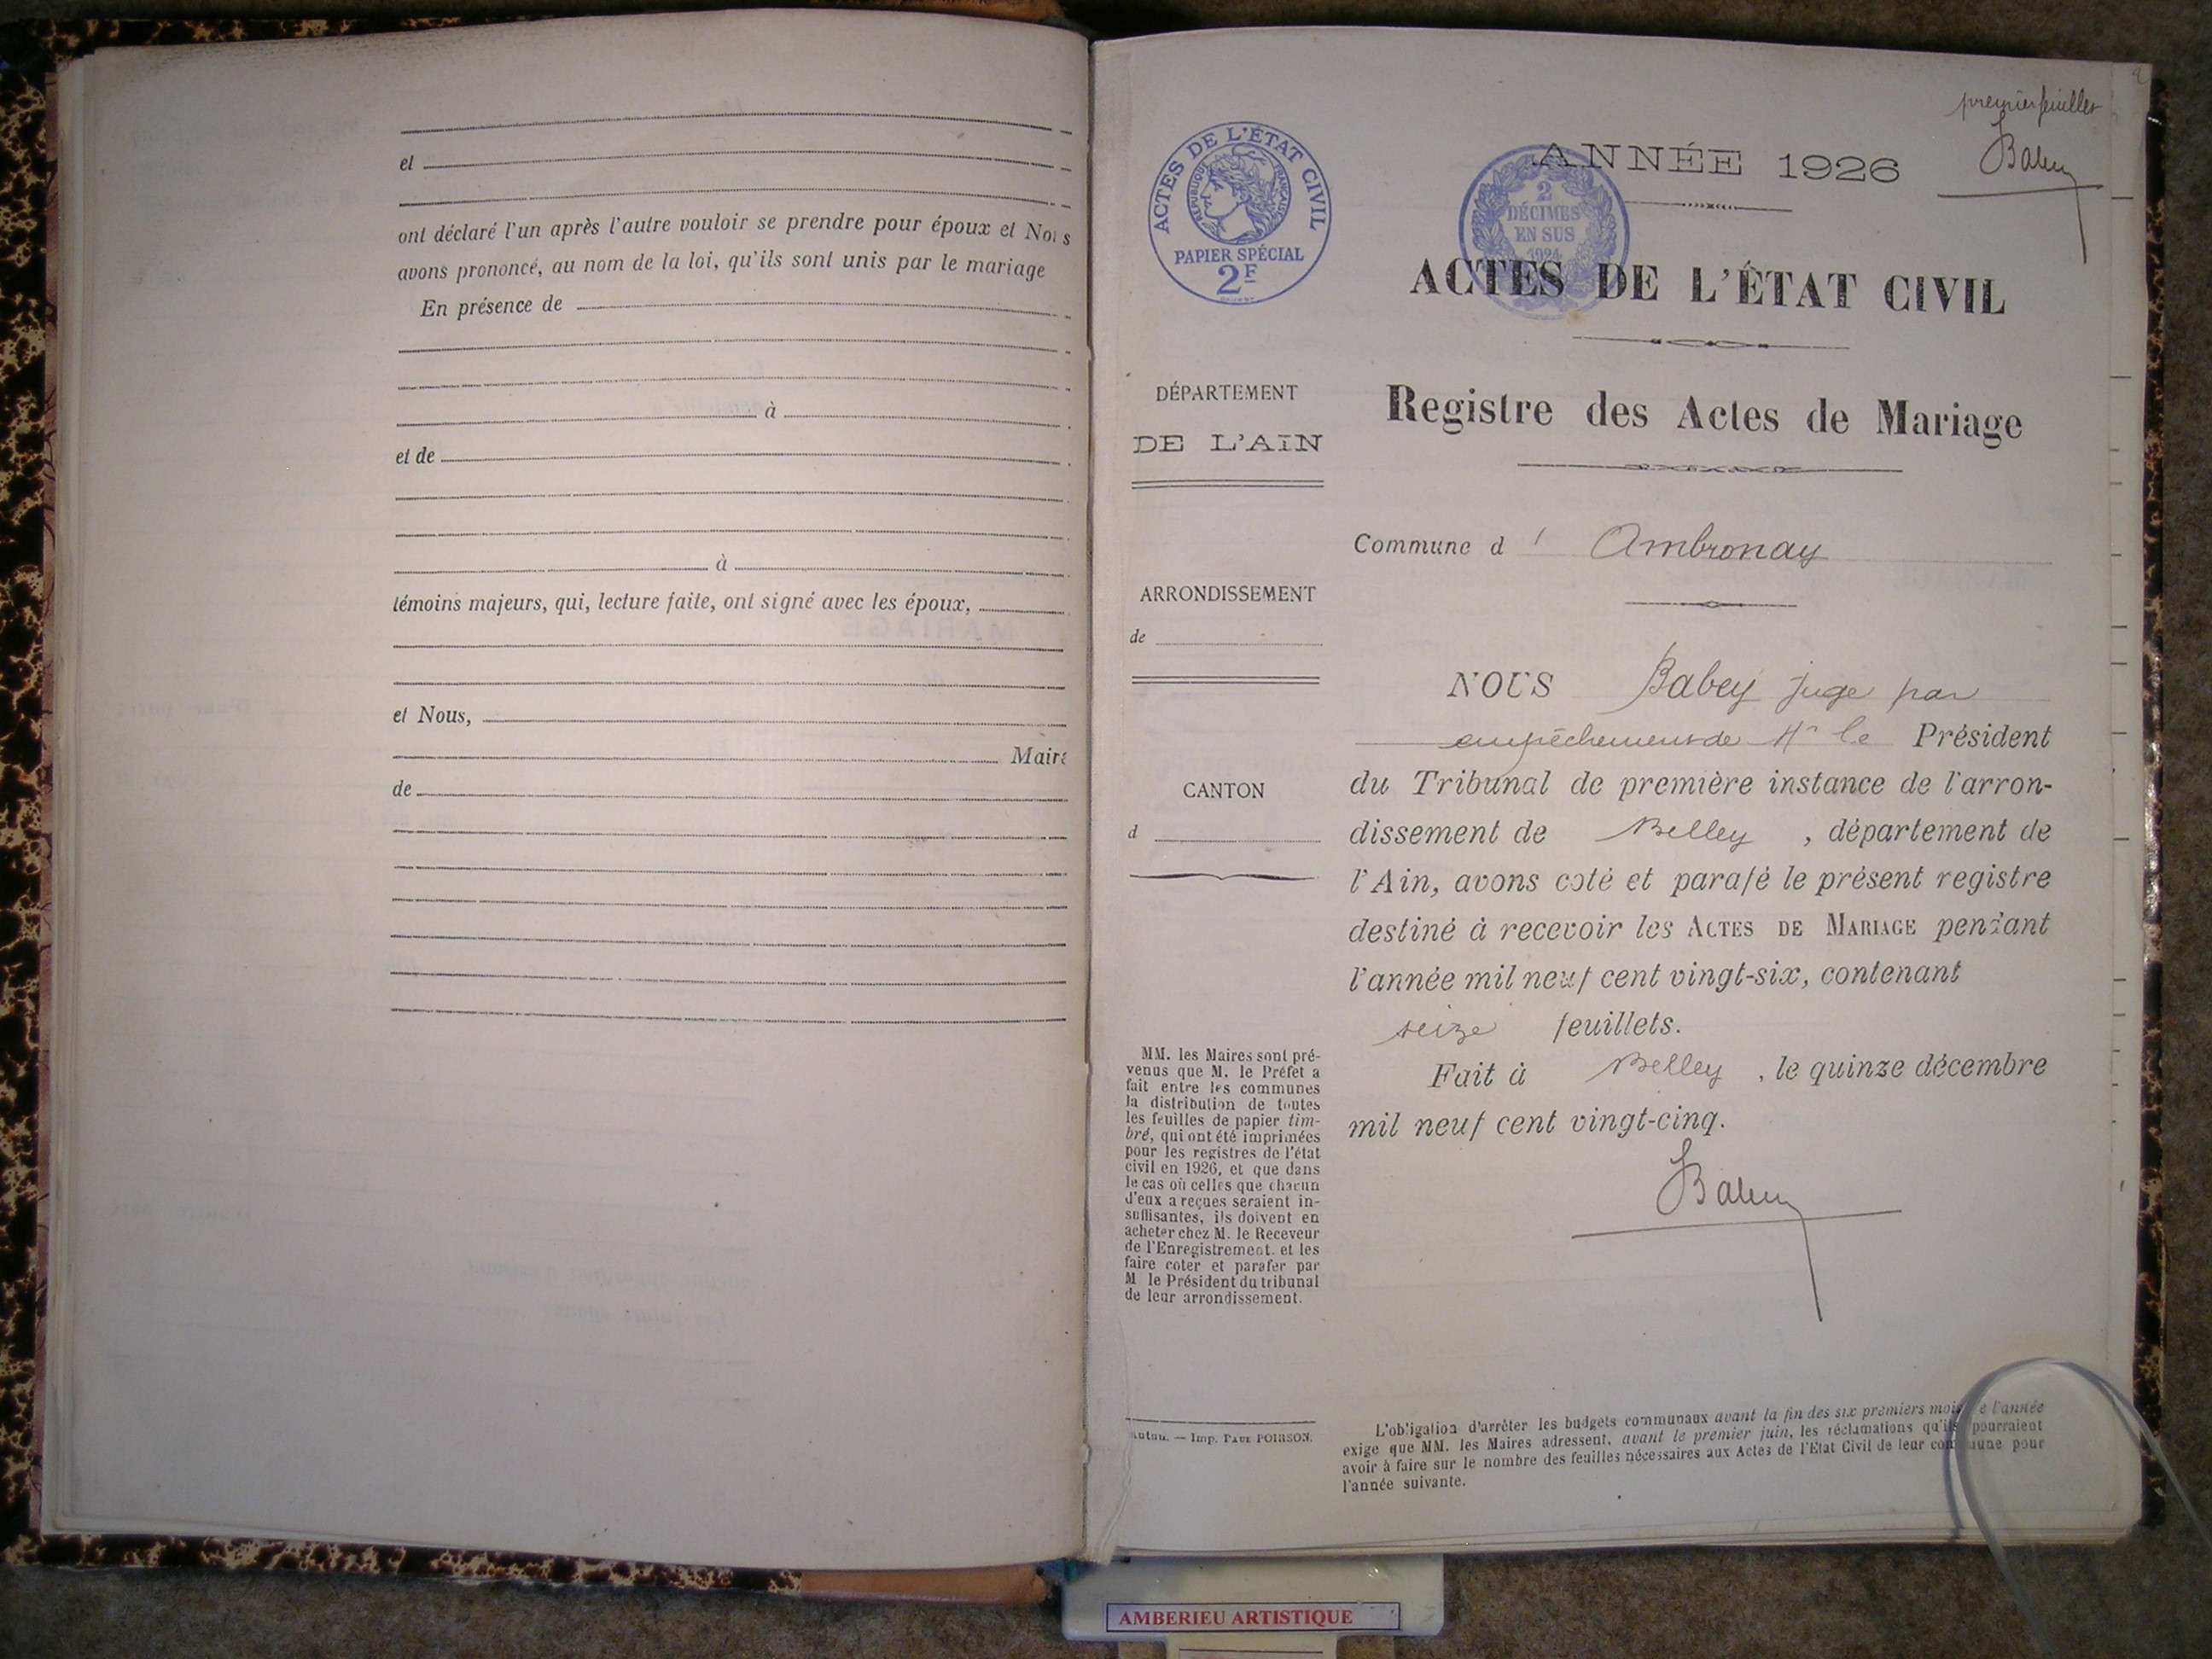 et
ont déclaré l'un après l'autre vouloir se prendre pour époux et Nous
avons prononcé, au nom de la loi, qu'ils sont unis par le mariage
En présence de
à
et de
à
témoins majeurs, qui, lecture faite, ont signé avec les époux,
et Nous,
Maire
de
premier feuillet
Babey
ACTES DE L'ÉTAT CIVIL
RÉPUBLIQUE FRANÇAISE
PAPIER SPÉCIAL
2F
2
DÉCIMES
EN SUS
1924
ANNÉE 1926
ACTES DE L'ÉTAT CIVIL
Registre des Actes de Mariage
DÉPARTEMENT
DE L'AIN
ARRONDISSEMENT
de
CANTON
d
MM. les Maires sont pré-
venus que M. le Préfet a
fait entre les communes
la distribution de toutes
les feuilles de papier tim-
bré, qui ont été imprimées
pour les registres de l'état
civil en 1926, et que dans
le cas où celles que chacun
d'eux a reçues seraient in-
suffisantes, ils doivent en
acheter chez M. le Receveur
de l'Enregistrement. et les
faire coter et parafer par
M le Président du tribunal
de leur arrondissement.
Autun. — Imp. PAUL POIRSON.
Commune d' Ambronay
NOUS Babey juge par
empêchement de Mr le Président
du Tribunal de première instance de l'arron-
dissement de Belley, département de
l'Ain, avons coté et parafé le présent registre
destiné à recevoir les ACTES DE MARIAGE pendant
l'année mil neuf cent vingt-six, contenant
seize feuillets.
Fait à Belley, le quinze décembre
mil neuf cent vingt-cinq.
Babey
L'obligation d'arrêter les budgets communaux avant la fin des six premiers mois de l'année
exige que MM. les Maires adressent, avant le premier juin, les réclamations qu'ils pourraient
avoir à faire sur le nombre des feuilles nécessaires aux Actes de l'Etat Civil de leur commune pour
l'année suivante.
AMBERIEU ARTISTIQUE